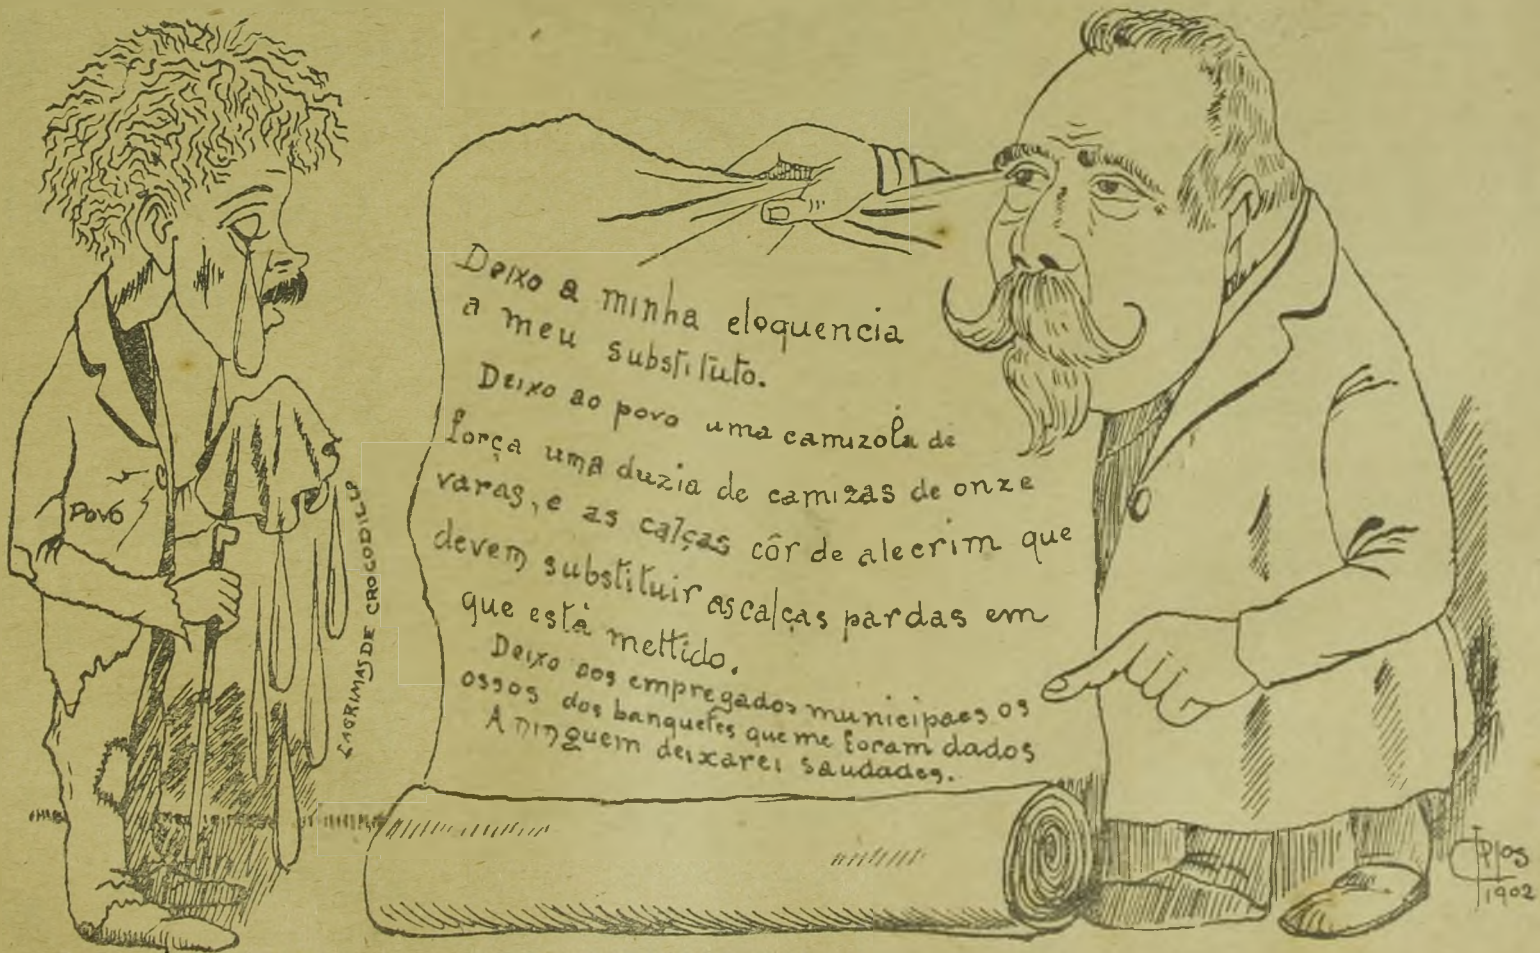 Povo
LAGRIMAS DE CROCODILLO
Deixo a minha eloquencia
a meu substituto.
Deixo ao povo uma camizola de
força uma duzia de camizas de onze
varas, e as calças côr de alecrim que
devem substituir as calças pardas em
que está mettido.
Deixo aos empregados municipaes os
ossos dos banquetes que me foram dados
A ninguem deixarei saudades.
1902